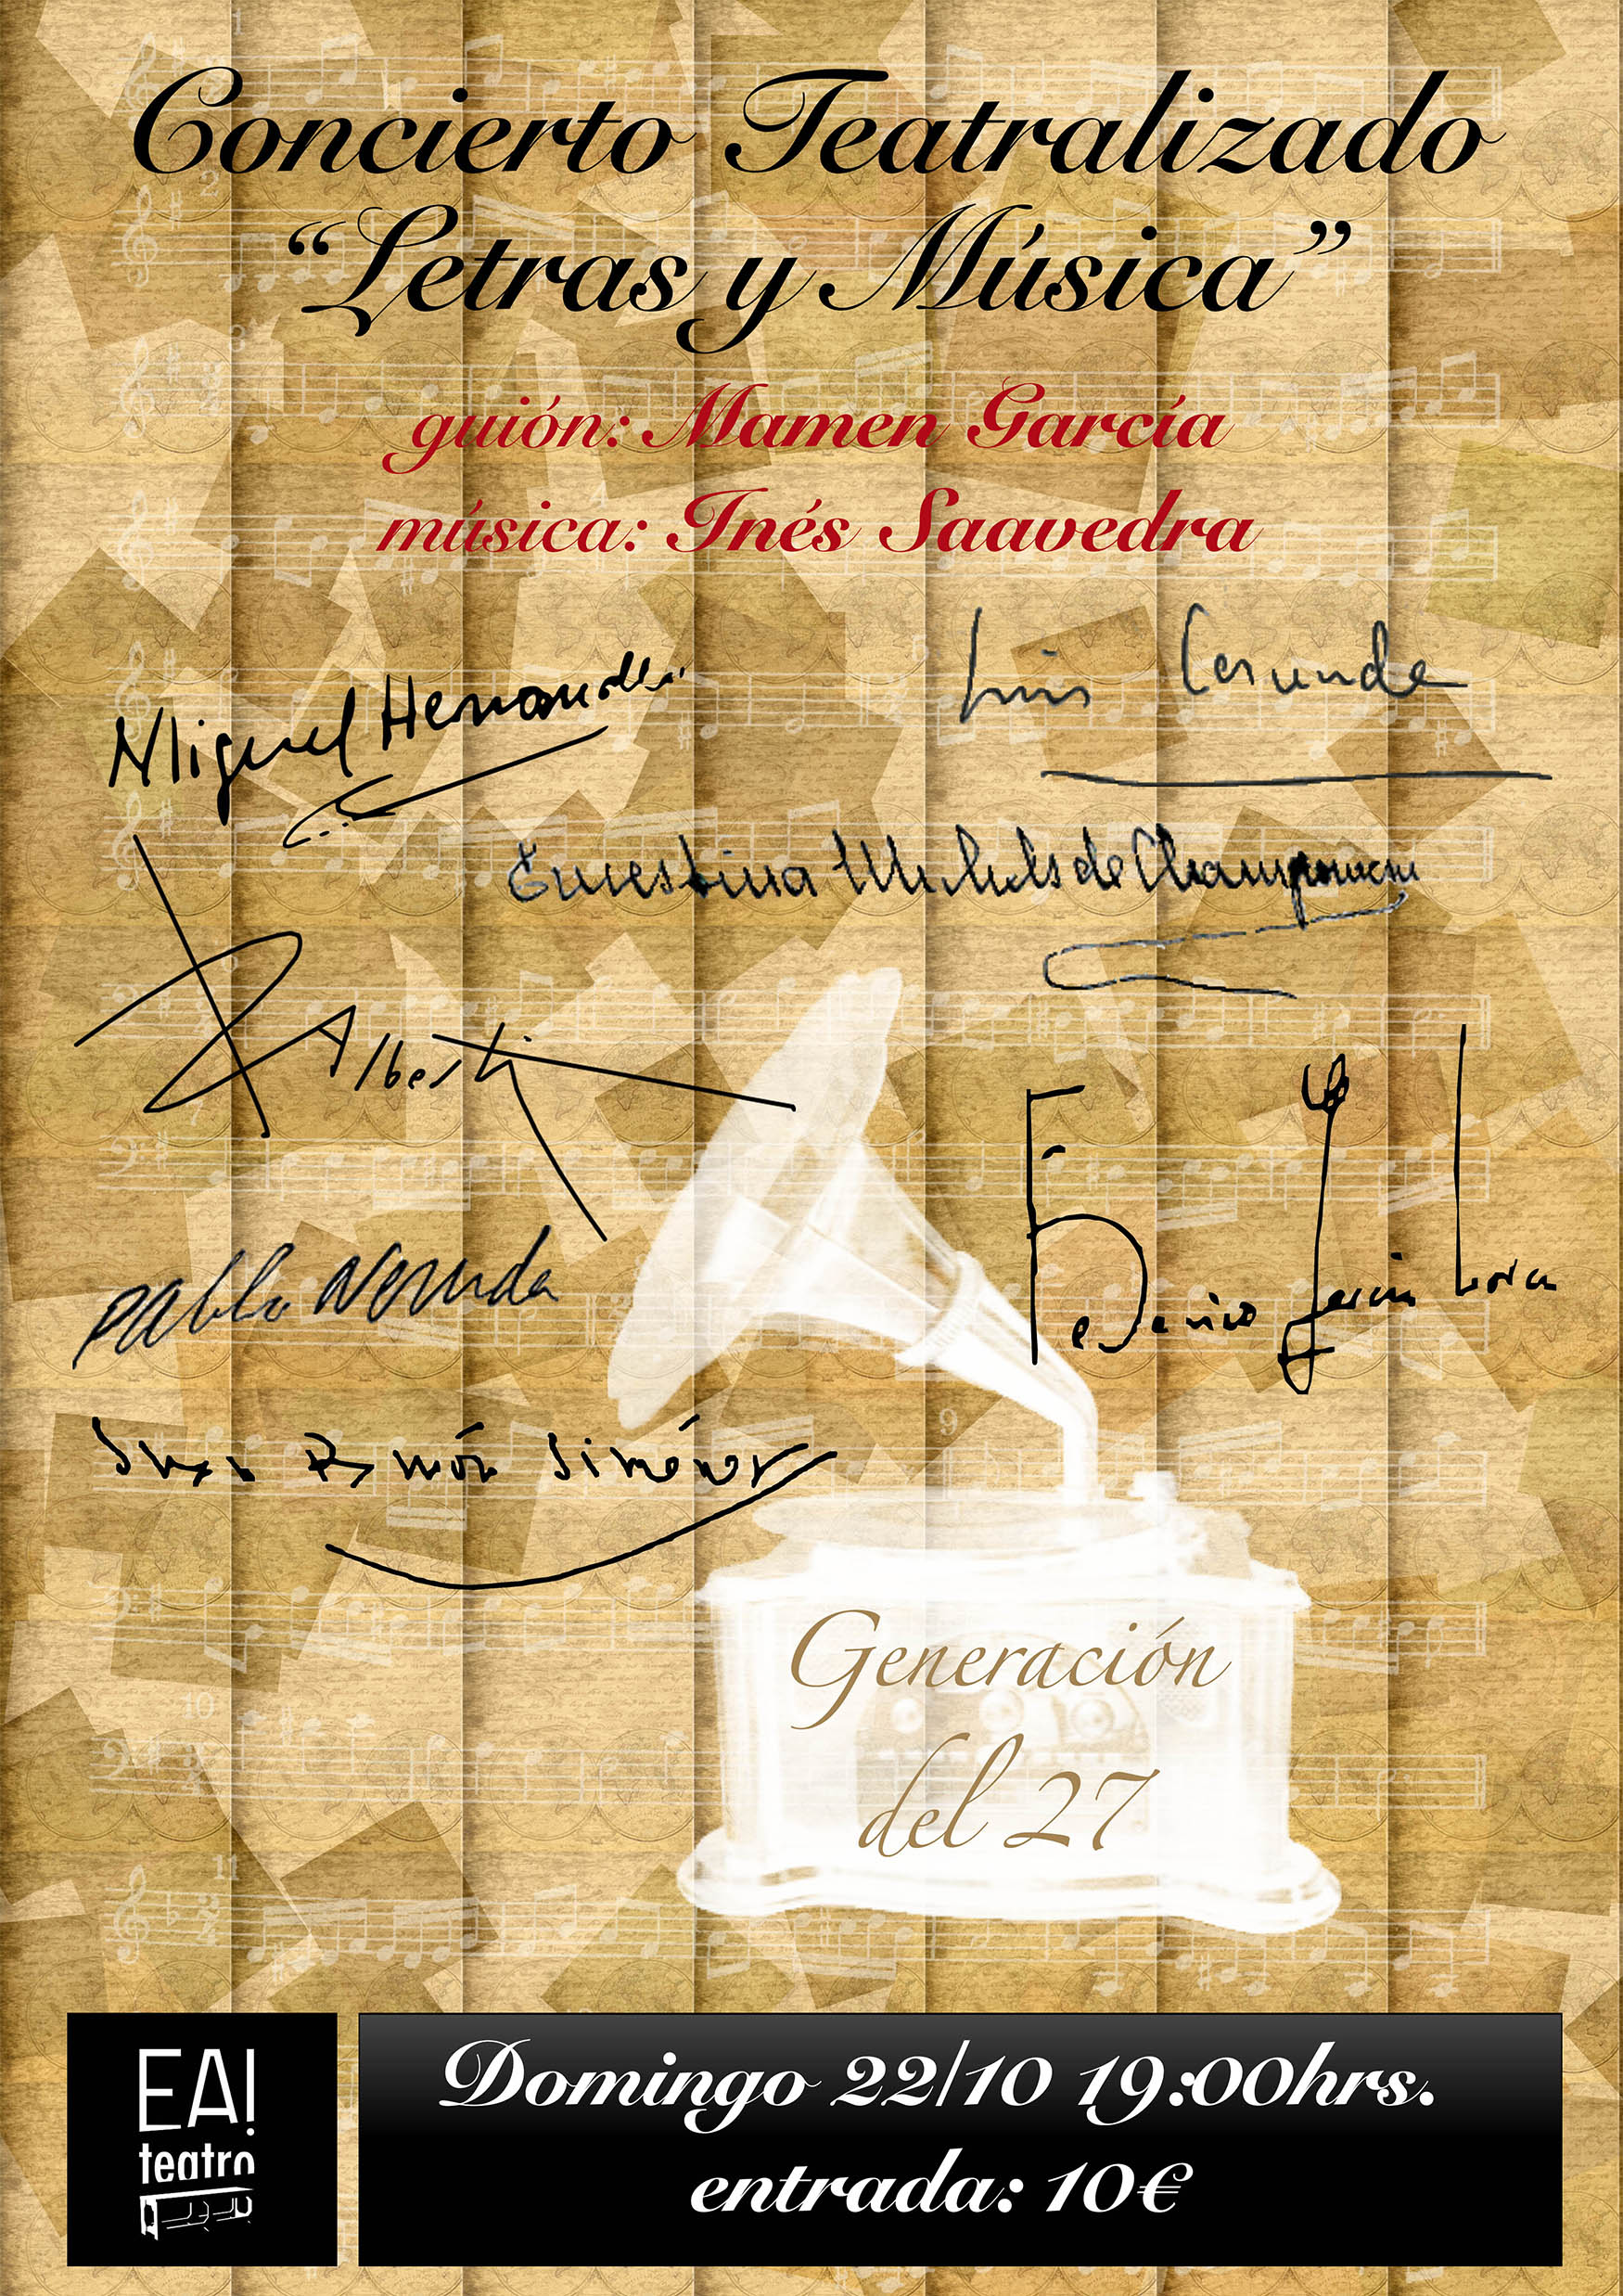 Concierto Teatralizado
“Letras y Música”
guión: Mamen García
música: Inés Saavedra
Luis Cernuda
Miguel Hernandez
Ernestina Michels de Champourcin
R Alberti
Federico García Lorca
Pablo Neruda
Juan Ramón Jiménez
Generación
del 27
EA!
teatro
Domingo 22/10 19:00hrs.
entrada: 10€
1
2
3
4
6
9
10
11